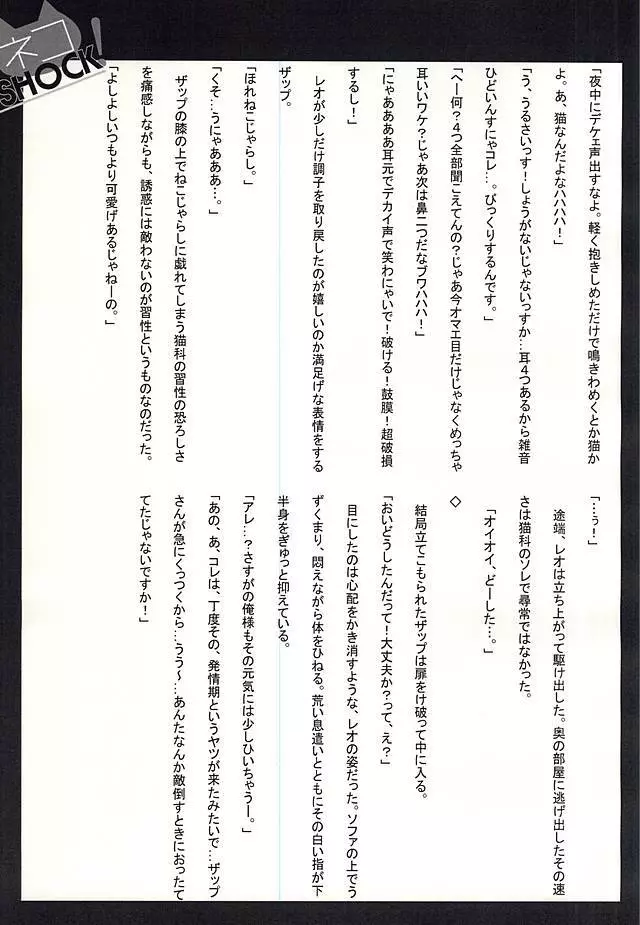 ネコ
SHOCK!
「夜中にデケェ声出すなよ。軽く抱きしめただけで鳴きわめくとか猫か
よ。あ、猫なんだよなハハハハ！」
「う、うるさいっす！しょうがないじゃないっすか…耳４つあるから雑音
ひどいんすにゃコレ…。びっくりするんです。」
「へー何？４つ全部聞こえてんの？じゃあ今オマエ目だけじゃなくめっちゃ
耳いいワケ？じゃあ次は鼻二つだなブワハハハ！」
「にゃああああ耳元でデカイ声で笑わにゃいで！破ける！鼓膜！超破損
するし！」
レオが少しだけ調子を取り戻したのが嬉しいのか満足げな表情をする
ザップ。
「ほれねこじゃらし。」
「くそ…うにゃあああ…。」
ザップの膝の上でねこじゃらしに戯れてしまう猫科の習性の恐ろしさ
を痛感しながらも、誘惑には敵わないのが習性というものなのだった。
「よしよしいつもより可愛げあるじゃねーの。」
「…ぅ！」
途端、レオは立ち上がって駆け出した。奥の部屋に逃げ出したその速
さは猫科のソレで尋常ではなかった。
「オイオイ、どーした…。」
◇
結局立てこもられたザップは扉をけ破って中に入る。
「おいどうしたんだって！大丈夫か？って、え？」
目にしたのは心配をかき消すような、レオの姿だった。ソファの上でう
ずくまり、悶えながら体をひねる。荒い息遣いとともにその白い指が下
半身をぎゅっと抑えている。
「アレ…？さすがの俺様もその元気には少しひいちゃうー。」
「あの、あ、コレは、丁度その、発情期というヤツが来たみたいで…ザップ
さんが急にくっつくから…うう～…あんたなんか敵倒すときにおったて
てたじゃないですか！」